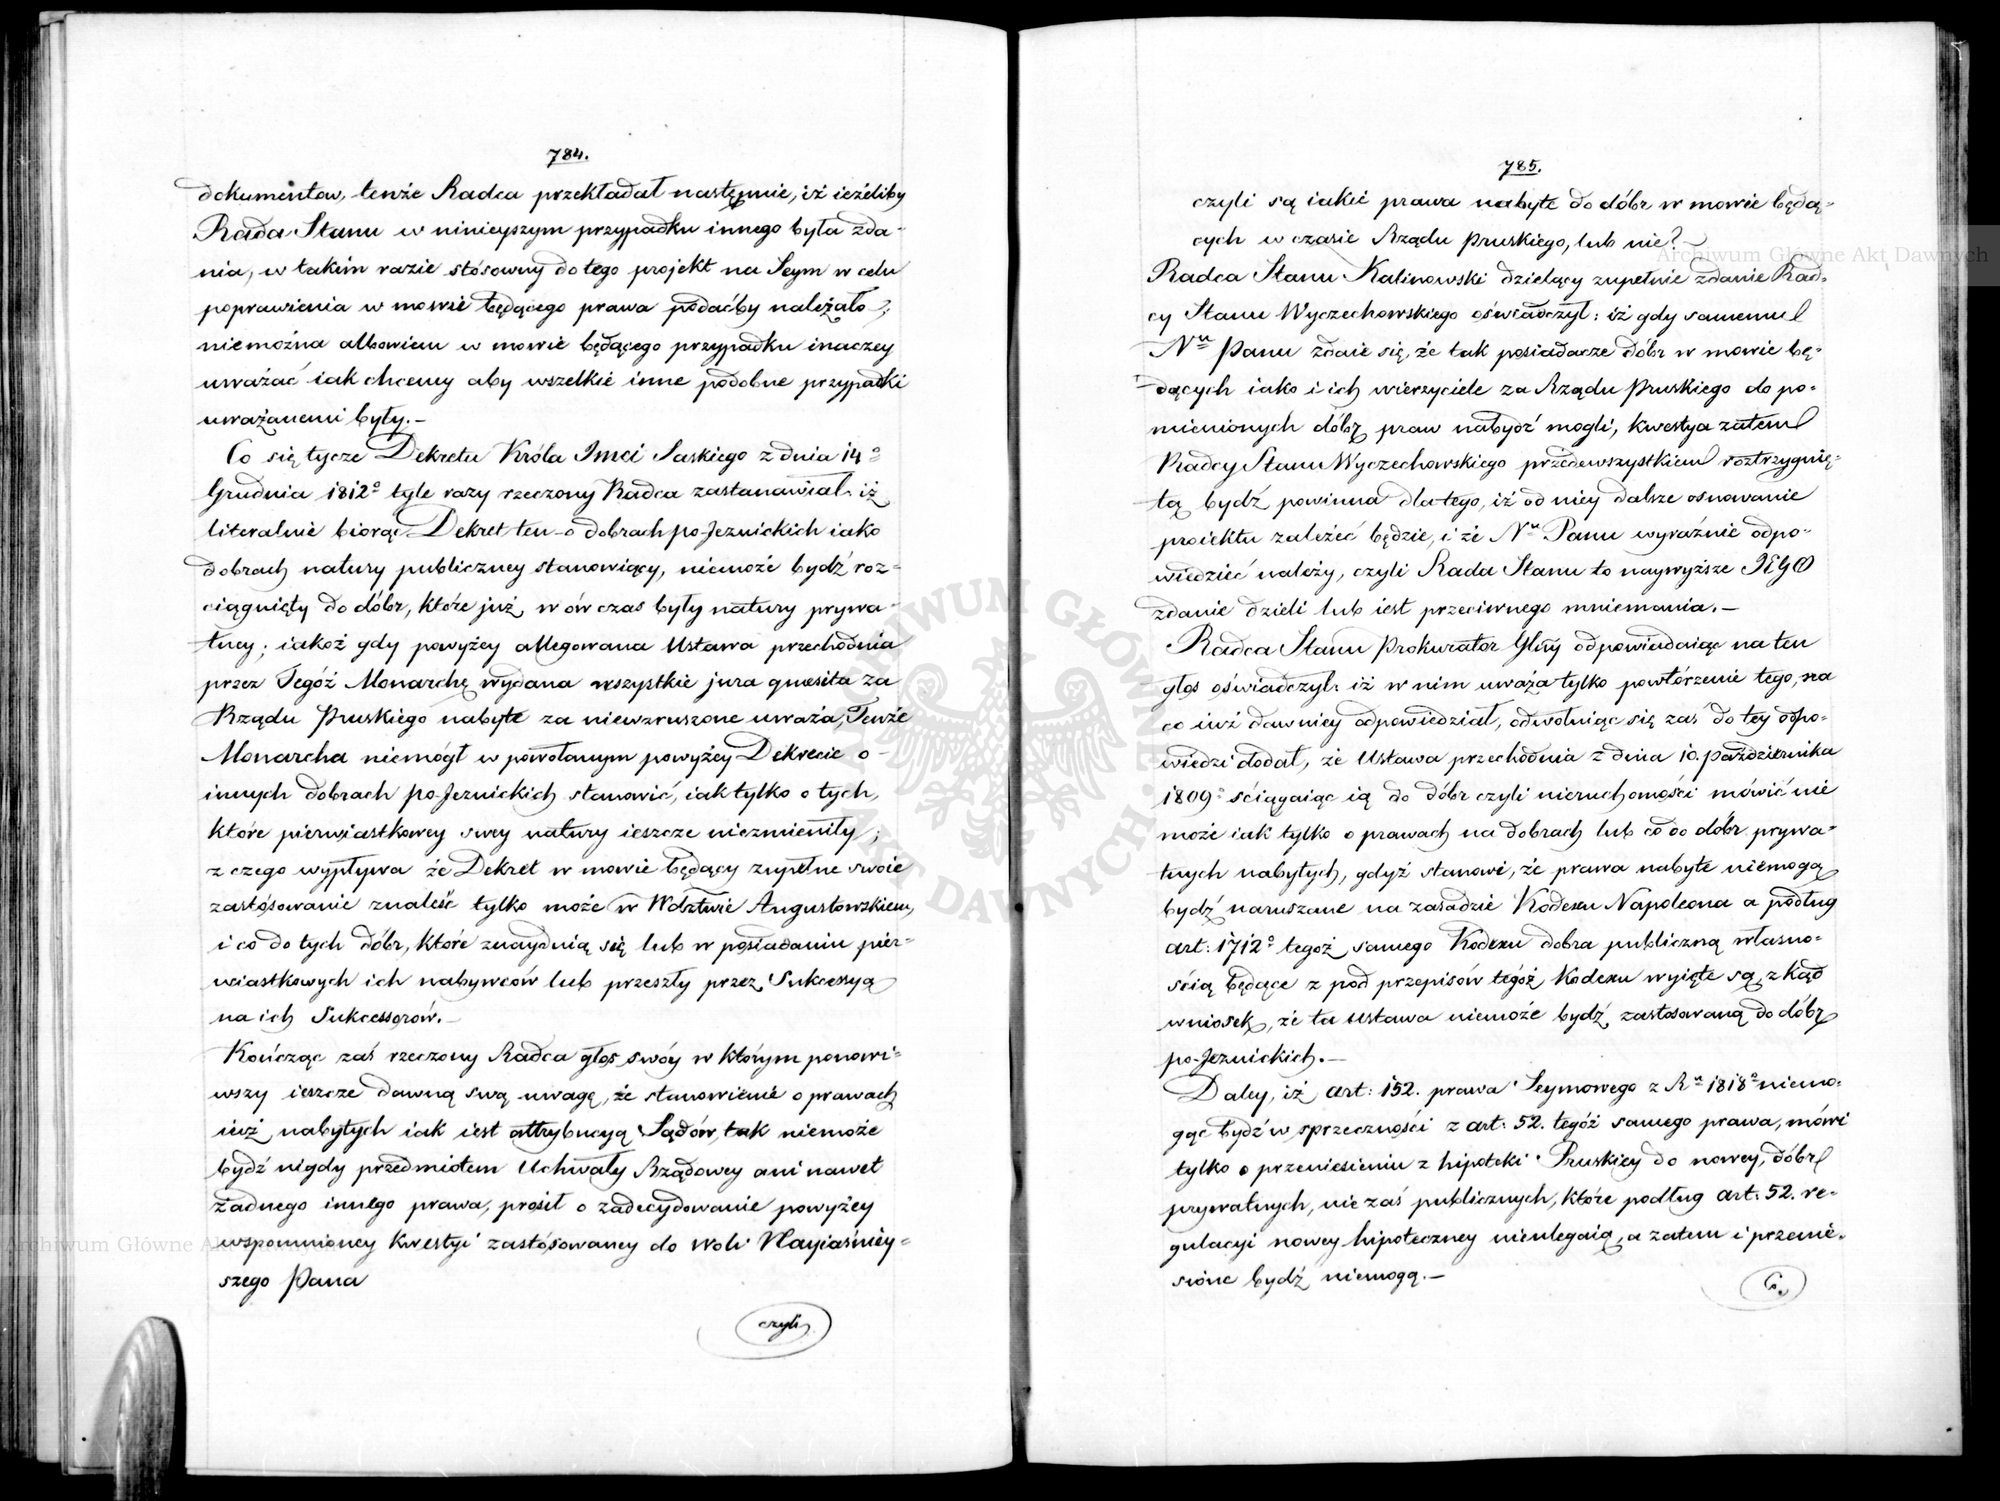 784.
dokumentow, tenże Radca przekładał następnie, iż ieżeliby
Rada Stanu w ninieyszym przypadku innego była zda-
nia, w takim razie stósowny do tego projekt na Seym w celu
poprawienia w mowie będącego prawa podaćby należało;
niemożna albowiem w mowie będącego przypadku inaczey
uważać iak chcemy aby wszelkie inne podobne przypadki
uważanemi były.—
Co się tycze Dekretu Króla Imci Saskiego z dnia 14°
Grudnia 1812° tyle razy rzeczony Radca zastanawiał: iż
literalnie biorąc Dekret ten o dobrach po-Jezuickich iako
dobrach natury publiczney stanowiący, niemoże bydź roz-
ciągnięty do dóbr, które już w ów czas były natury prywa-
tney; iakoż gdy powyżey allegowana Ustawa przechodnia
przez Tegóż Monarchę wydana wszystkie jura quæsita za
Rządu Pruskiego nabyte za niewzruszone uważa, Tenże
Monarcha niemógł w powołanym powyżey Dekrecie o
innych dobrach po-Jezuickich stanowić, iak tylko o tych,
które pierwiastkowey swey natury ieszcze niezmieniły;
z czego wypływa że Dekret w mowie będący zupełne swoie
zastósowanie znaleść tylko może w Wdztwie Augustowskiem,
i co do tych dóbr, które znaydują się lub w posiadaniu pier-
wiastkowych ich nabywców lub przeszły przez Sukcessyą
na ich Sukcessorów.—
Kończąc zaś rzeczony Radca głos swóy w którym ponowi-
wszy ieszcze dawną swą uwagę, że stanowienie o prawach
iuż nabytych iak iest attrybucyą Sądów, tak niemoże
bydź nigdy przedmiotem Uchwały Rządowey ani nawet
żadnego innego prawa, prosił o zadecydowanie powyżey
wspomnioney kwestyi zastósowaney do woli Nayiaśniey-
szego Pana
czyli
785.
czyli są iakie prawa nabyte do dóbr w mowie będą-
cych w czasie Rządu Pruskiego, lub nie?
Radca Stanu Kalinowski dzieląc zupełnie zdanie Rad-
cy Stanu Wyczechowskiego oświadczył: iż gdy samemu
Nu Panu zdaie się, że tak posiadacze dóbr w mowie bę-
dących iako i ich wierzyciele za Rządu Pruskiego do po-
mienionych dóbr praw nabydź mogli, kwestya zatem
Radcy Stanu Wyczechowskiego przedewszystkiem roztrzygnię-
tą bydź powinna dlatego, iż od niey dalsze osnowanie
proiektu zależeć będzie, i że Nu Panu wyraźnie odpo-
wiedzieć należy, czyli Rada Stanu to naywyższe JEGO
zdanie dzieli lub iest przeciwnego mniemania.—
Radca Stanu Prokurator Glny odpowiadaiąc na ten
głos oświadczył: iż w nim uważa tylko powtórzenie tego, na
co iuż dawniey odpowiedział, odwołuiąc się zaś do tey odpo-
wiedzi dodał, że Ustawa przechodnia z dnia 10. Października
1809° ściągaiąc ią do dóbr czyli nieruchomości mówić nie
może iak tylko o prawach na dobrach lub co do dóbr prywa-
tnych nabytych, gdyż stanowi, że prawa nabyte niemogą
bydź naruszane na zasadzie Kodexu Napoleona a podług
art: 1712° tegoż samego Kodexu dobra publiczną własno-
ścią będące z pod przepisów tegóż Kodexu wyięte są, zkąd
wniosek, że ta Ustawa niemoże bydź zastósowaną do dóbr
po-Jezuickich.—
Daley, iż art: 152. prawa Seymowego z Ru 1818° niemo-
gąc bydź w sprzeczności z art: 52. tegóż samego prawa, mówi
tylko o przeniesieniu z hipoteki Pruskiey do nowey, dóbr
prywatnych, nie zaś publicznych, które podług art: 52. re-
gulacyi nowey hipoteczney nieulegaią, a zatem i przenie-
sione bydź niemogą.—
Archiwum Główne Akt Dawnych
Archiwum Główne Akt Dawnych
ARCHIWUM GŁÓWNE AKT DAWNYCH